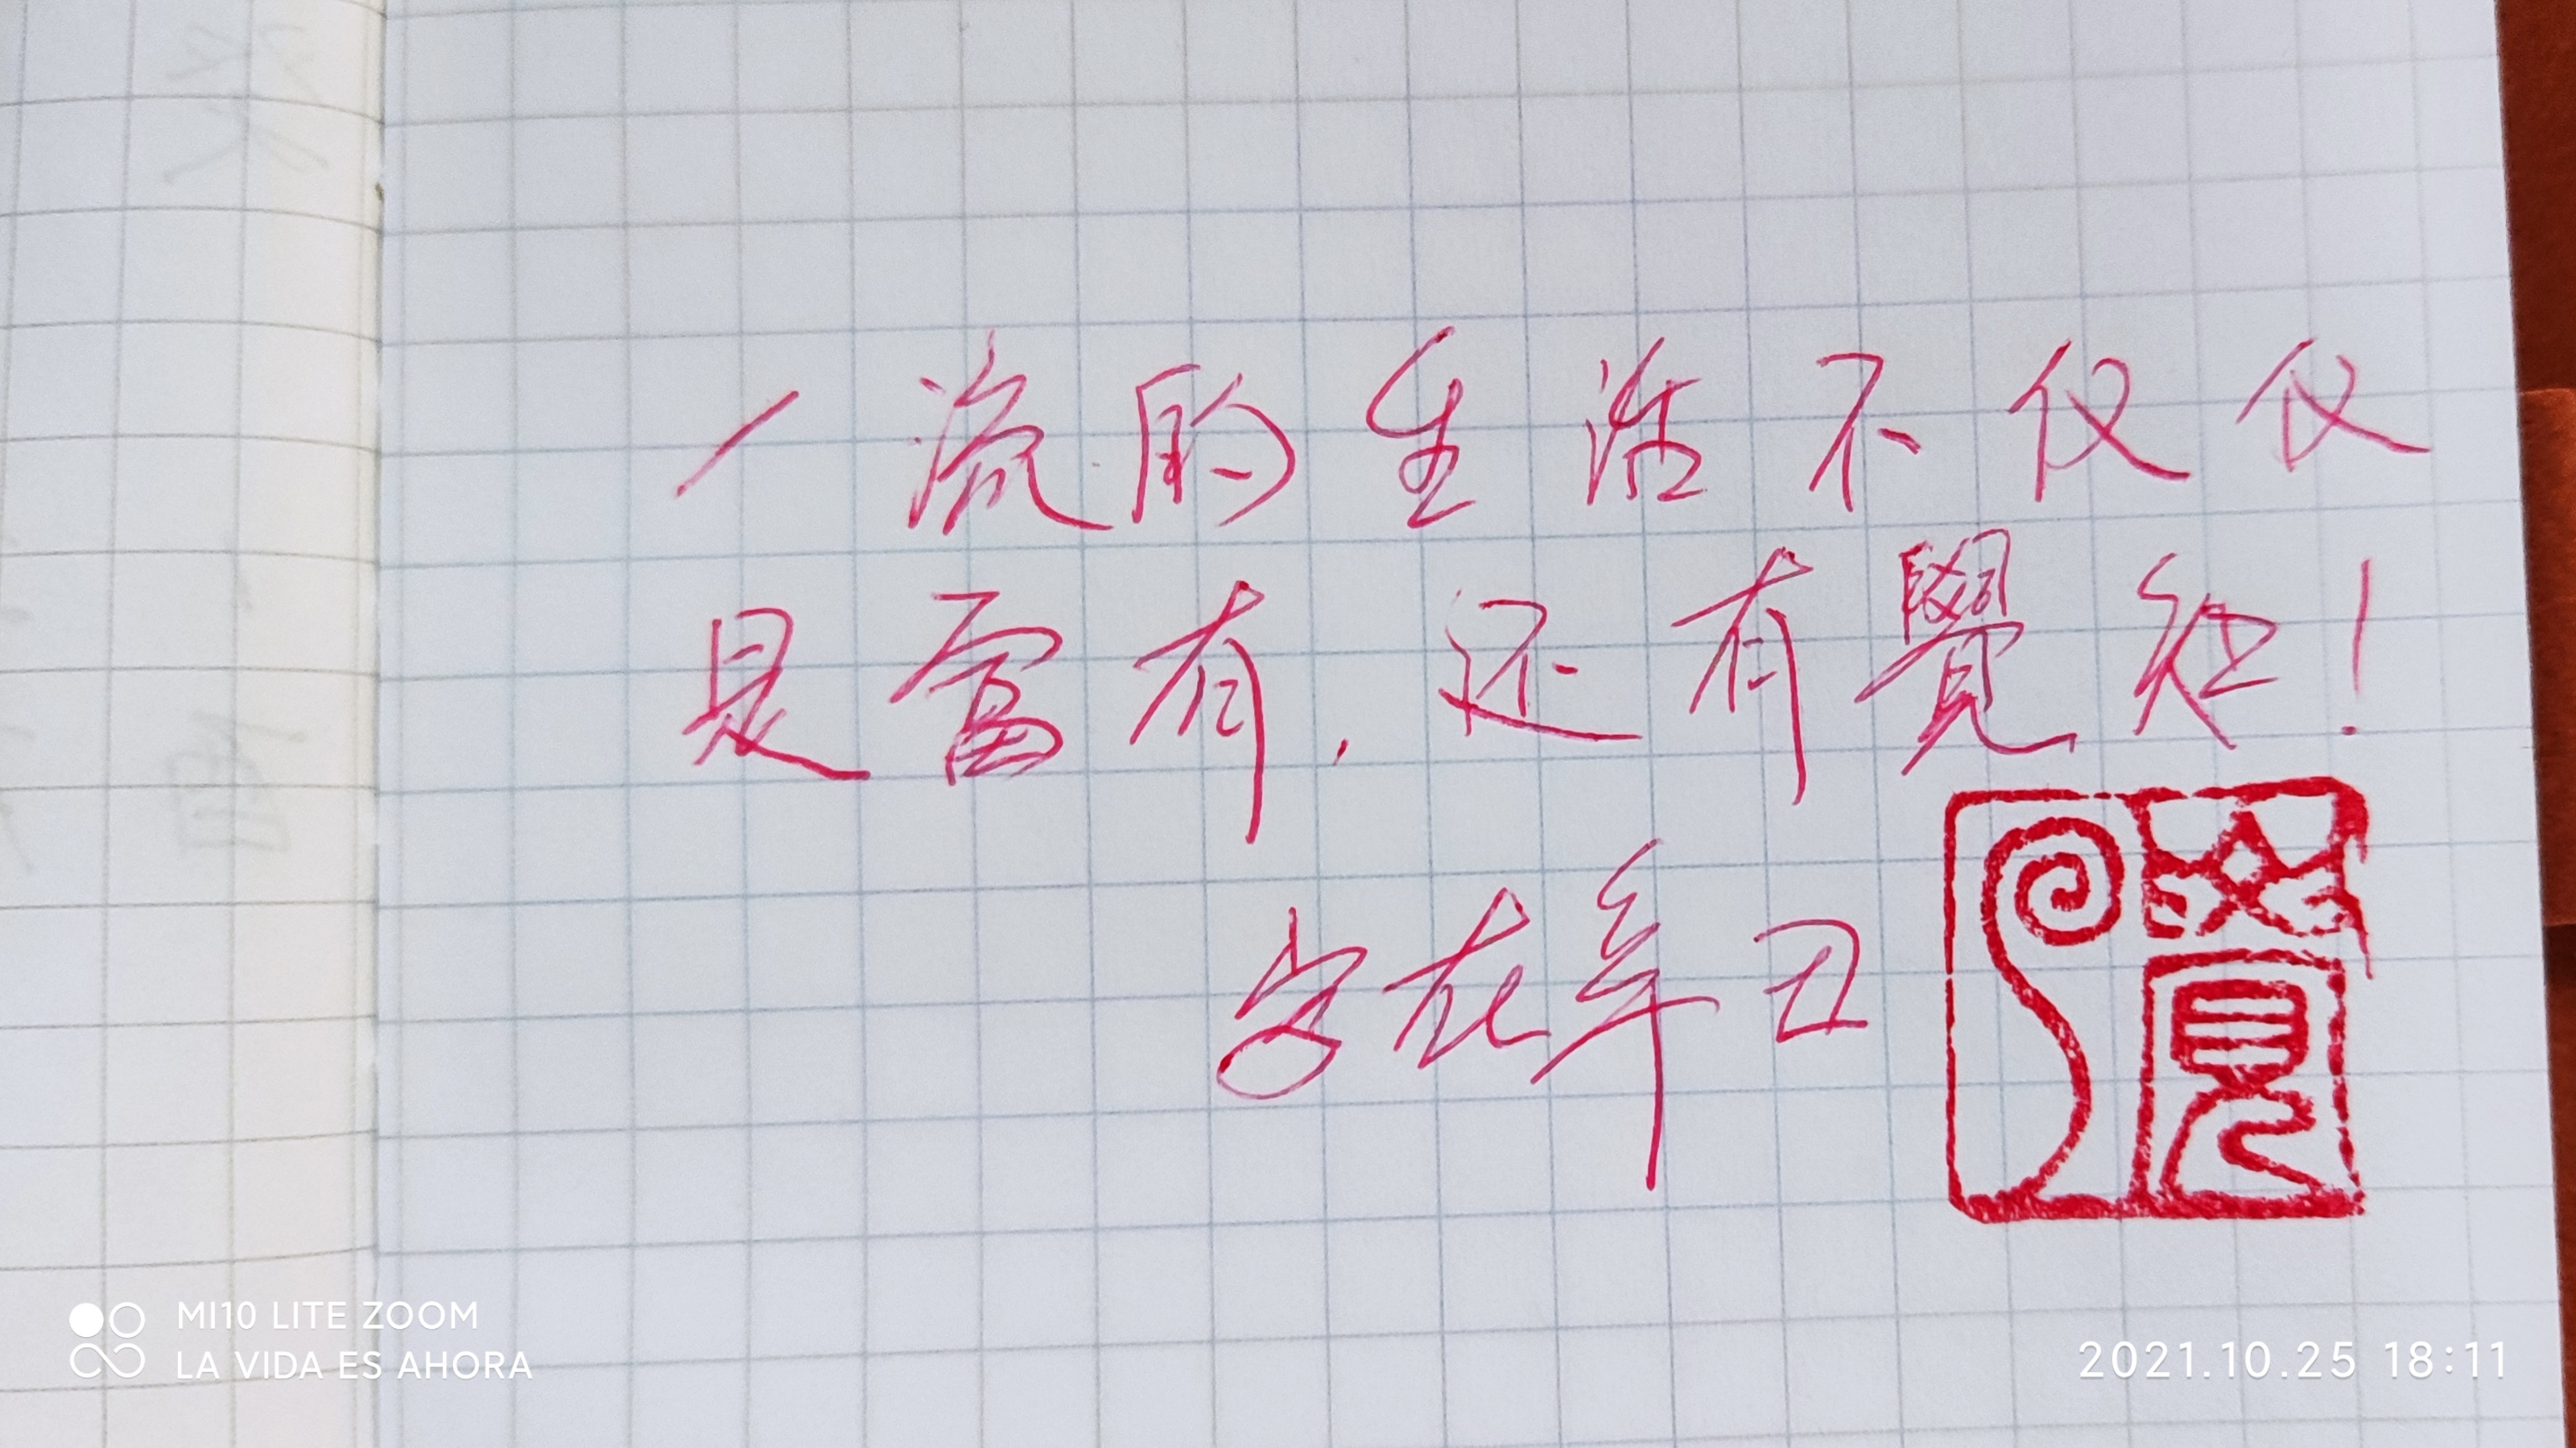 一流的生活不仅仅
是富有，还有覺知！
字在辛丑
覺
MI10 LITE ZOOM
LA VIDA ES AHORA
2021.10.25 18:11